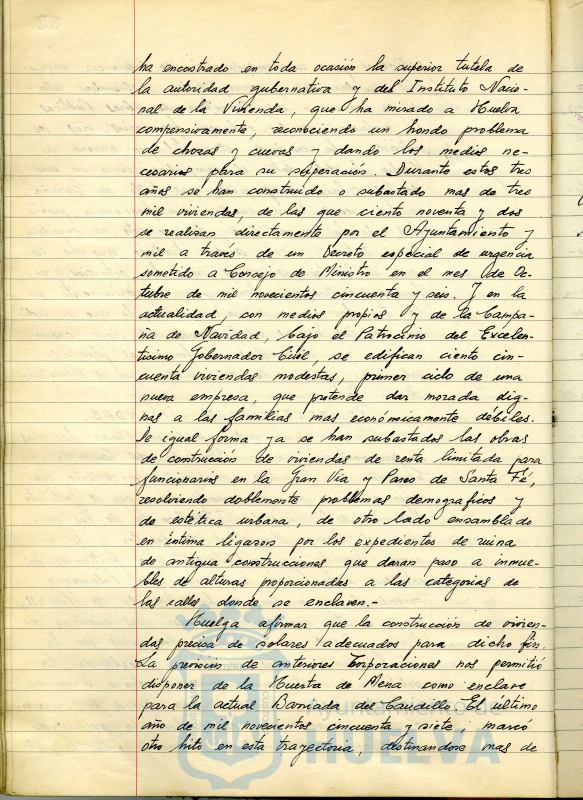 ha encontrado en toda ocasión la superior tutela de
la autoridad gubernativa y del Instituto Nacio-
nal de la Vivienda, que ha mirado a Huelva
compensivamente, reconociendo un hondo problema
de chozas y cuevas y dando los medios ne-
cesarios para su superación. Durante estos tres
años se han construido o subastado mas de tres
mil viviendas, de las que ciento noventa y dos
se realizan directamente por el Ayuntamiento y
mil a través de un Decreto especial de urgencia
sometido a Consejo de Ministro en el mes de Oc-
tubre de mil novecientos cincuenta y seis. Y en la
actualidad, con medios propios y de la Campa-
ña de Navidad, bajo el Patrocinio del Excelen-
tisimo Gobernador Civil, se edifican ciento cin-
cuenta viviendas modestas, primer ciclo de una
nueva empresa, que pretende dar morada dig-
nas a las familias mas económicamente débiles.
De igual forma ya se han subastados las obras
de construcción de viviendas de renta limitada para
funcionarios en la Gran Via y Paseo de Santa Fé,
resolviendo doblemente problemas demograficos y
de estética urbana, de otro lado ensamblado
en íntima ligazon por los expedientes de ruina
de antigua construcciones que daran paso a inmue-
bles de alturas proporcionadas a las categorias de
las calles donde se enclaven.-
Huelga afirmar que la construcción de vivien-
das precisa de solares adecuados para dicho fin.
La prevision de anteriores Corporaciones nos permitió
disponer de la Huerta de Mena como enclave
para la actual Barriada del Caudillo. El último
año de mil novecientos cincuenta y siete, marcó
otro hito en esta trayectoria, destinandose mas de
HUELVA